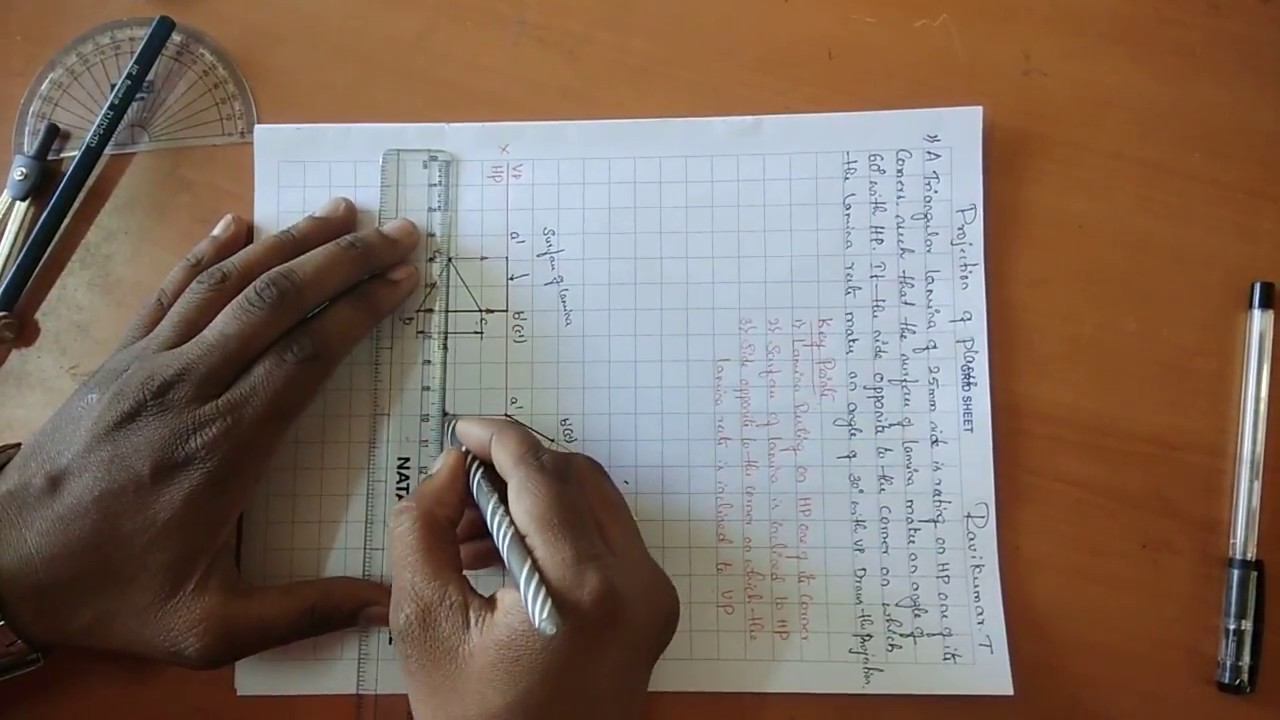 Ravikumar. T
Projection of plane
GRID SHEET
1) A Triangular lamina of 25mm side is resting on HP one of its
Corners. such that the surface of lamina makes an angle of
60° with HP. If the side opposite to the corner on which
the lamina rests makes an angle of 30° with VP. Draw the projection.
Key Points
1) Lamina Resting on HP one of its corner
2) Surface of lamina is inclined to HP
3) Side opposite to the corner on which the
lamina rests is inclined to VP
Surface of lamina
b'(c')
a' b'(c') a'
X VP
HP
c
b
NATA